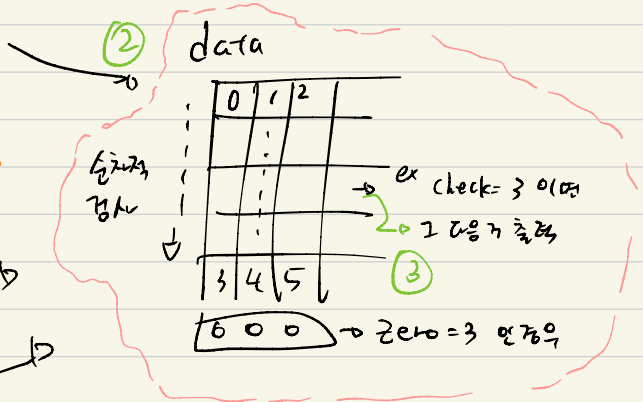 ② data
0 1 2
순차적
검사
ex check = 3 이면
그 다음거 출력
③
3 4 5
0 0 0 → Zero = 3 인경우